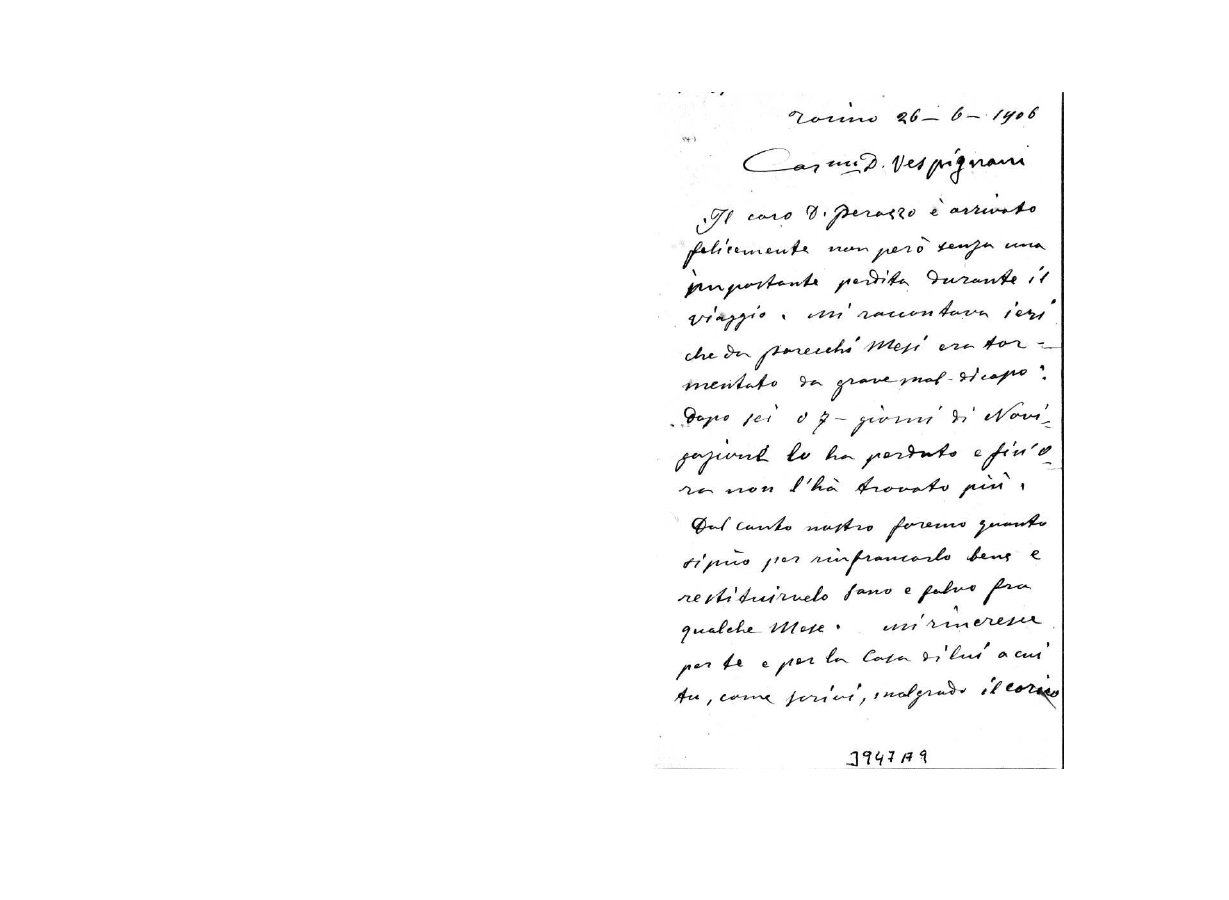 Torino 26 - 6 - 1906
Car.mo D. Vespignani
Il caro D. Perazzo è arrivato
felicemente non però senza una
importante perdita durante il
viaggio. Mi raccontava ieri
che da parecchi Mesi era tor-
mentato da grave mal di capo:
dopo sei o 7 - giorni di Navi-
gazione lo ha perduto e fin'o-
ra non l'hà trovato più.
Dal canto nostro faremo quanto
si può per rinfrancarlo bene e
restituirvelo sano e salvo fra
qualche Mese. Mi rincresce
per te e per la Casa di lui a cui
tu, come scrivi, malgrado il carico
3947A9